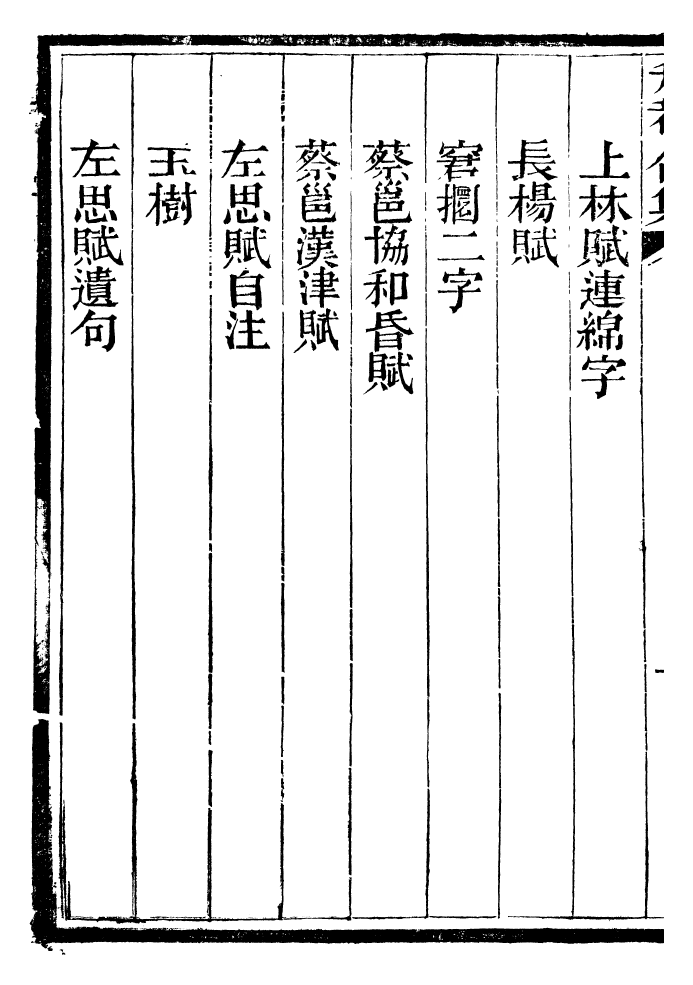 上林賦連綿字
長楊賦
蔡邕協和昏賦
蔡邕漢津賦
左思賦自注
玉樹
左思賦遺句